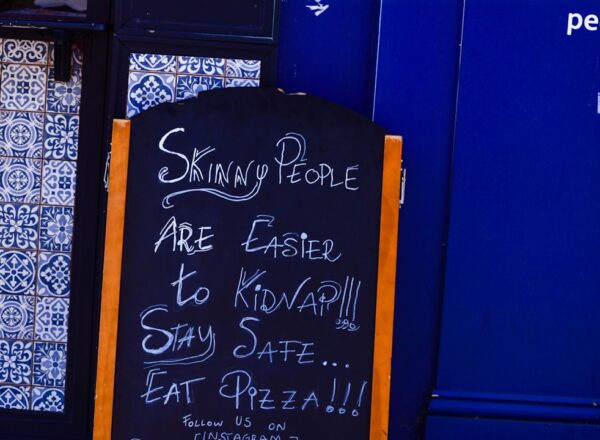 pe
Skinny People
Are Easier
to Kidnap!!!
Stay Safe...
Eat Pizza!!!
Follow us on
Instagram